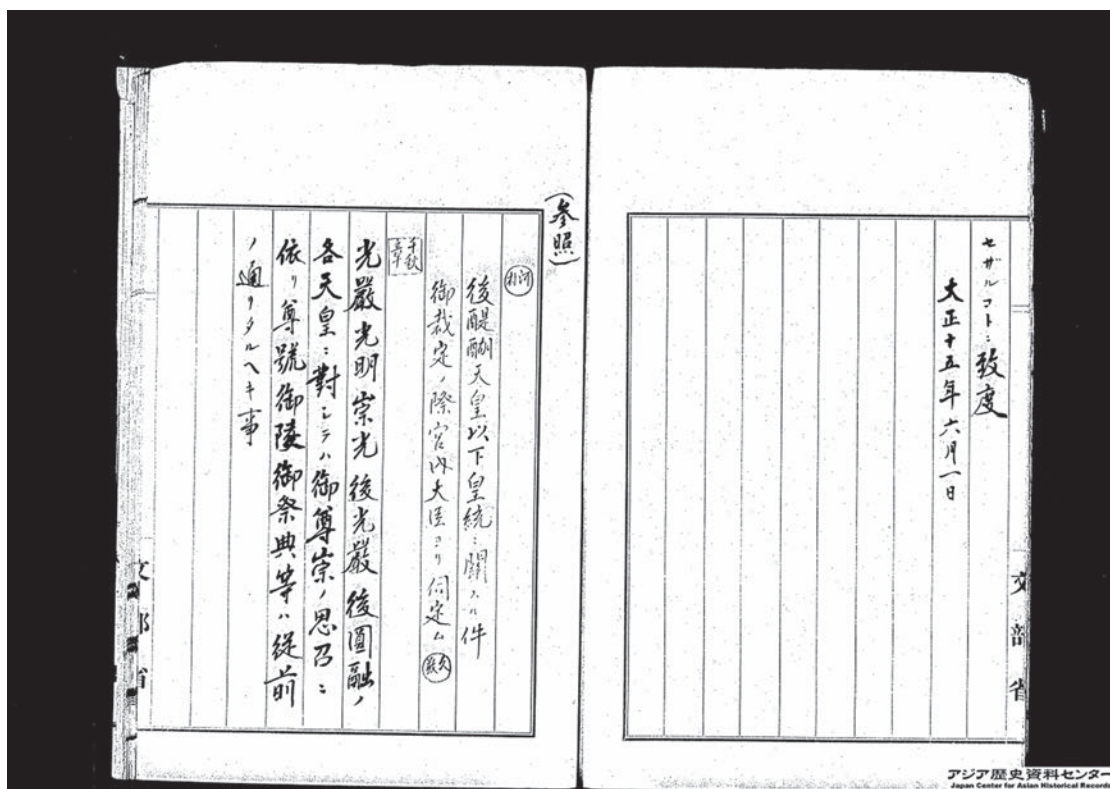 セザルコトニ致度
大正十五年六月一日
文部省
(参照)
後醍醐天皇以下皇統ニ關スル件
御裁定ノ際宮内大臣ヨリ伺定ム
光嚴光明崇光後光嚴後圓融ノ
各天皇ニ對シテハ御尊崇ノ思召ニ
依リ尊號御陵御祭典等ハ從前
ノ通リタルヘキ事
文部省
アジア歴史資料センター
Japan Center for Asian Historical Records